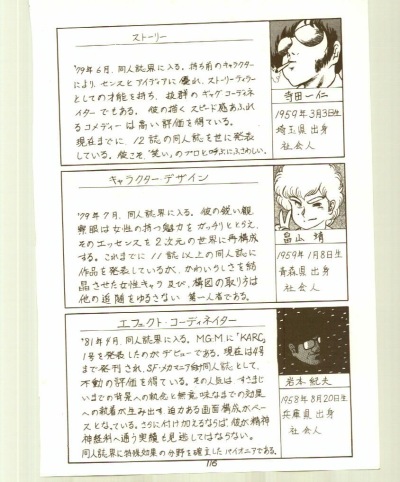 ストーリー
'79年6月、同人誌界に入る。持ち前のキャラクター
により、センスとアイディアに優れ、ストーリーテラー
としての才能を持ち、抜群のギャグコーディネ
イターでもある。彼の描くスピード感あふれ
るコメディーは高い評価を得ている。
現在までに12誌の同人誌を世に発表
している。彼こそ、"笑い"のプロと呼ぶにふさわしい。
寺田一仁
1959年3月3日生
埼玉県出身
社会人
キャラクター・デザイン
'79年7月、同人誌界に入る。彼の鋭い観
察眼は女性の持つ魅力をガッチリととらえ、
そのエッセンスを2次元の世界に再構成
する。これまでに11誌以上の同人誌に
作品を発表しているが、かわいらしさを結
晶させた女性キャラ及び、構図の取り方は
他の追随をゆるさない第一人者である。
畠山 靖
1959年1月8日生
青森県出身
社会人
エフェクト・コーディネイター
'81年4月、同人誌界に入る。M.G.M.に「KARC」
1号を発表したのがデビューである。現在は4号
まで発刊され、SF・メカマニア向け同人誌として、
不動の評価を得ている。その人気は、すさまじ
いまでの背景への執念と無意味なまでの効果
への執着が生み出す、迫力ある画面構成がベー
スとなっている。さらに付け加えるならば、彼が精神
神経科へ通う実績も見逃してはならない。
同人誌界に特殊効果の分野を確立したパイオニアである。
岩本紀夫
1958年8月20日生
兵庫県出身
社会人
116